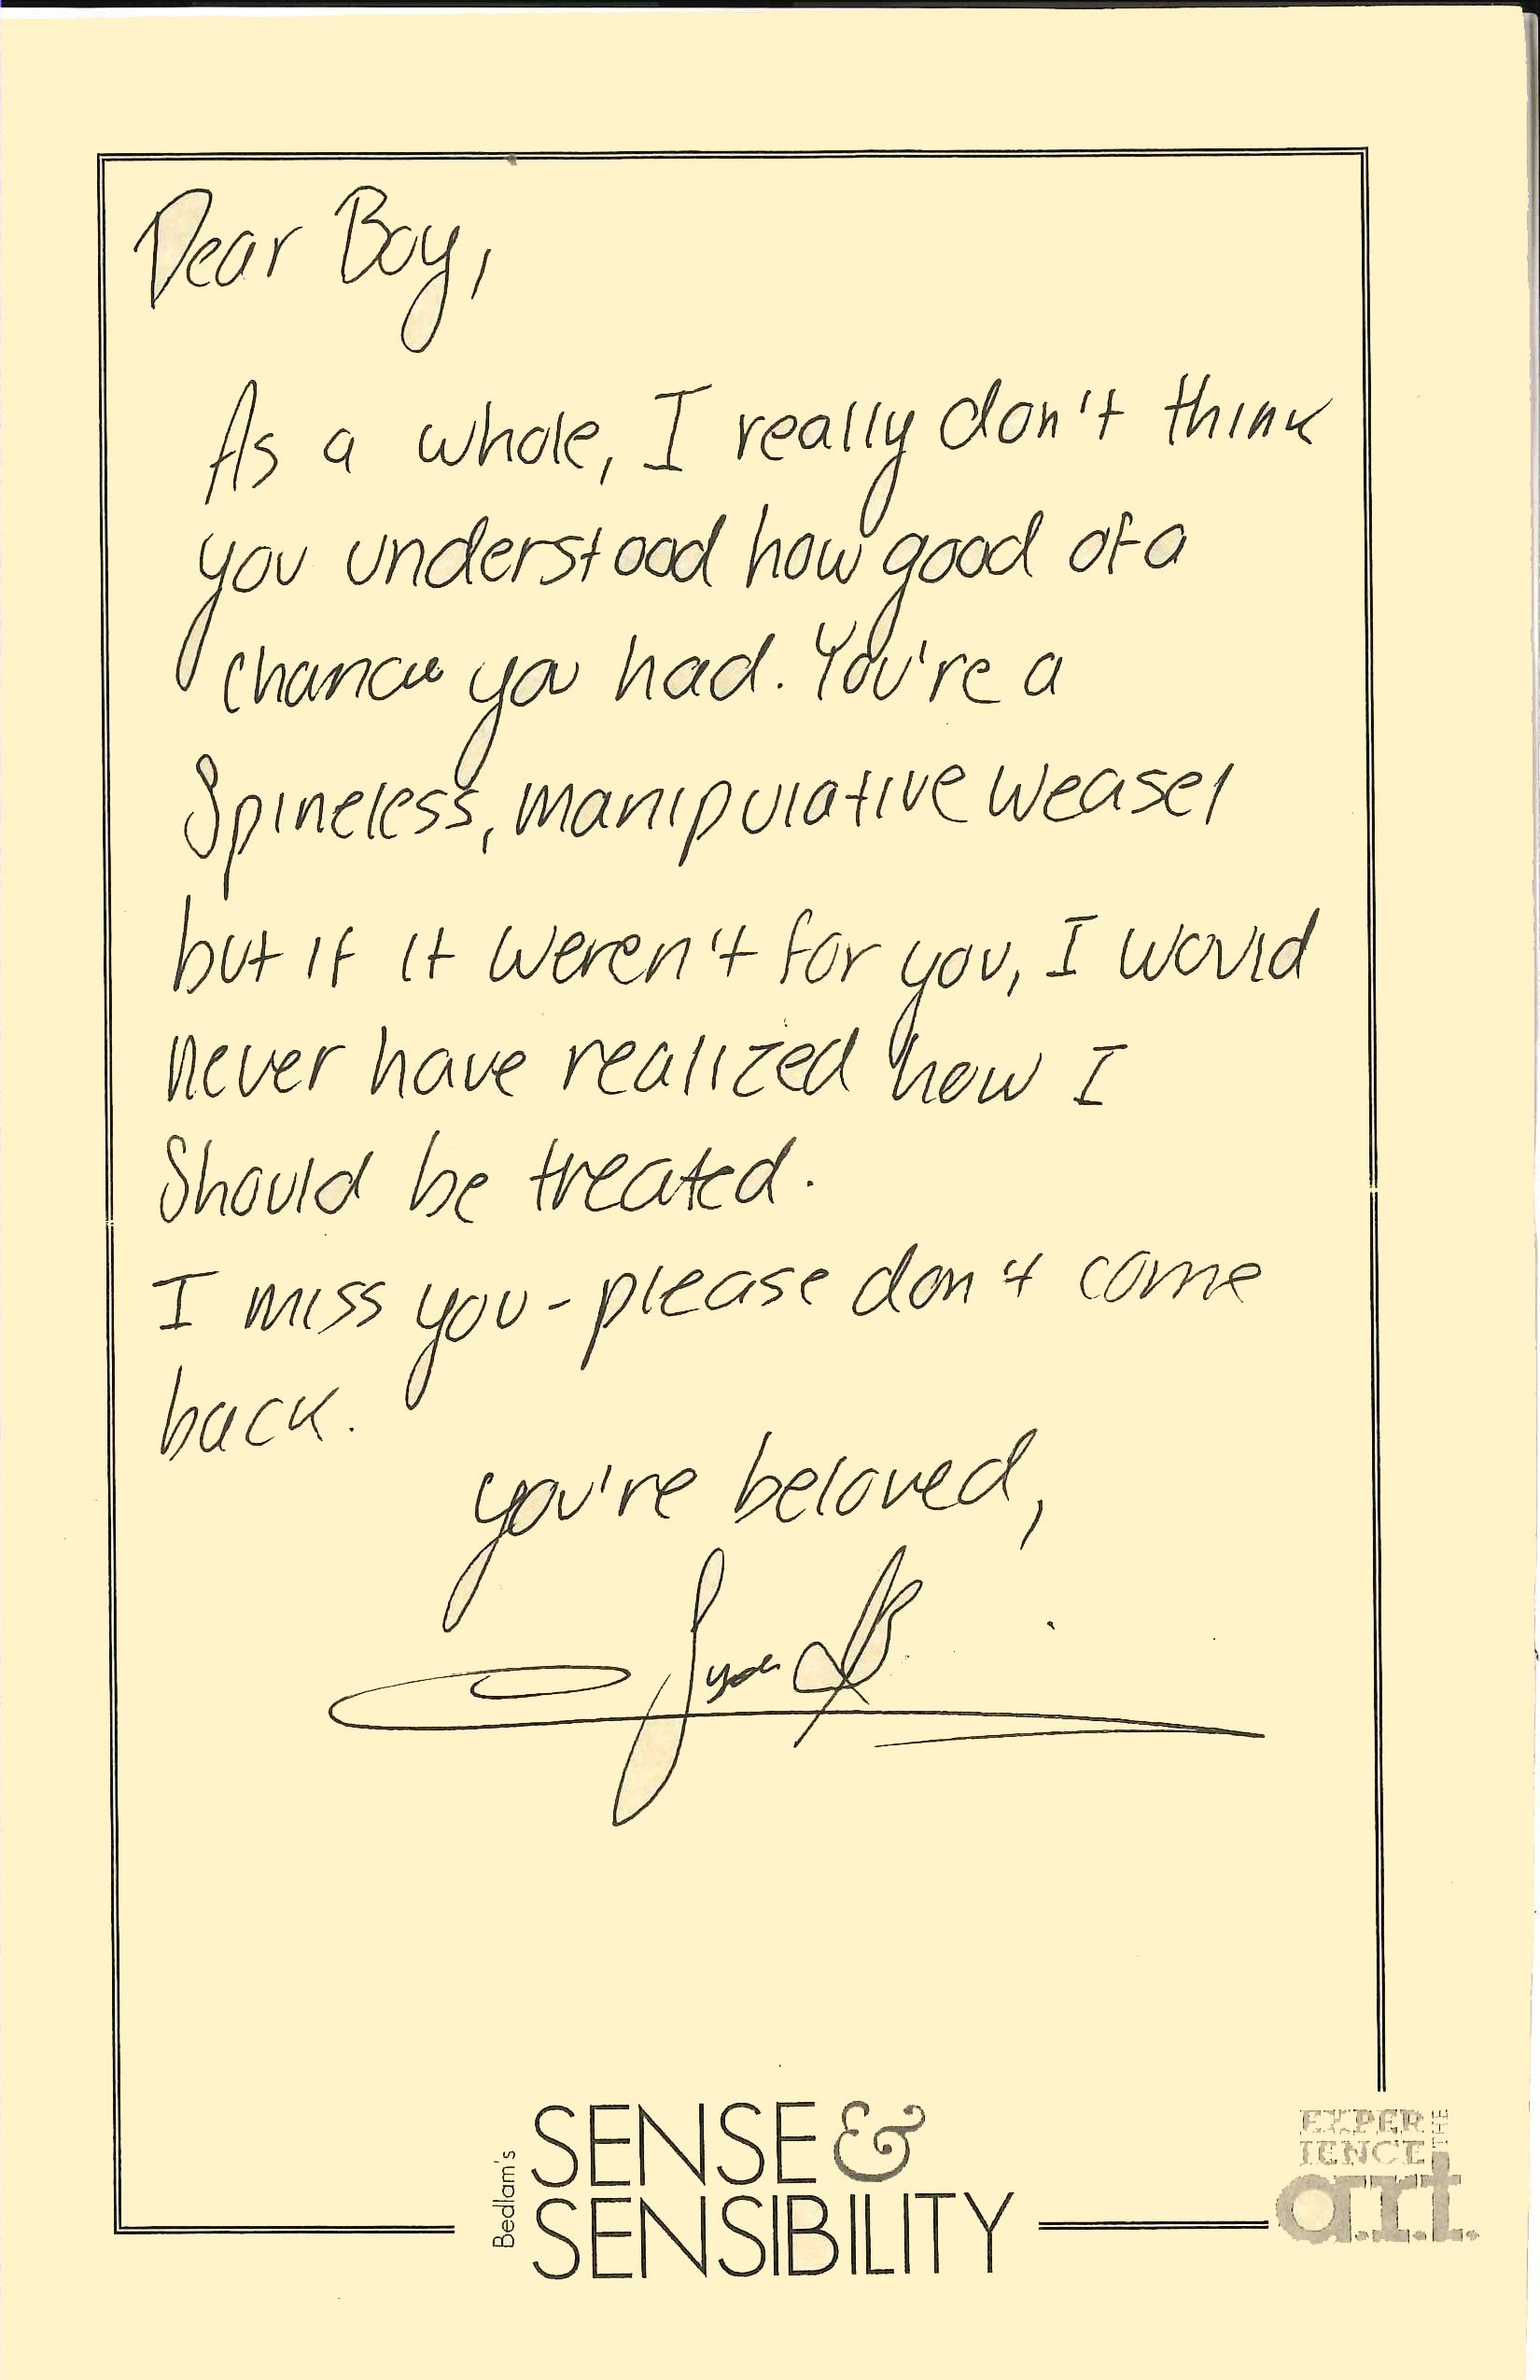 Dear Boy,
As a whole, I really don't think
you understood how good of a
chance you had. You're a
Spineless, manipulative weasel
but if it weren't for you, I would
never have realized how I
Should be treated.
I miss you - please don't come
back.
you're beloved,
Bedlam's
SENSE &
SENSIBILITY
EXPER
IENCE THE
a.r.t.